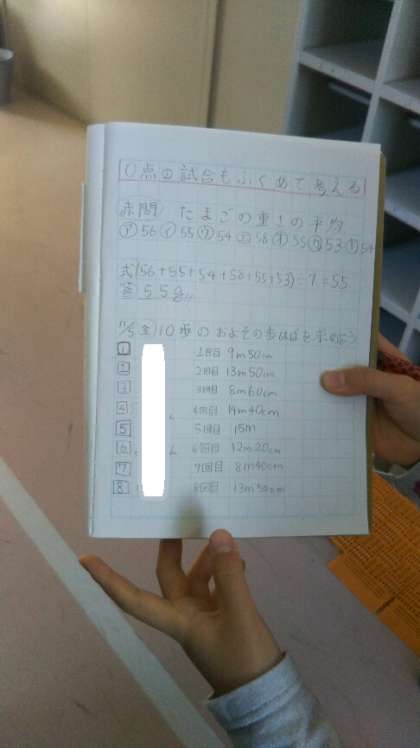 0点の試合もふくめて考える
赤問 たまごの重さの平均
ア56 イ55 ウ54 エ58 オ55 カ53 キ54
式(56+55+54+58+55+53)÷7=55
答 55g
11/5 金 10歩のおよその歩はばを求めよう
1 1回目 9m50cm
2 2回目 13m50cm
3 3回目 8m60cm
4 4回目 14m40cm
5 5回目 15m
6 6回目 12m20cm
7 7回目 8m40cm
8 8回目 13m50cm